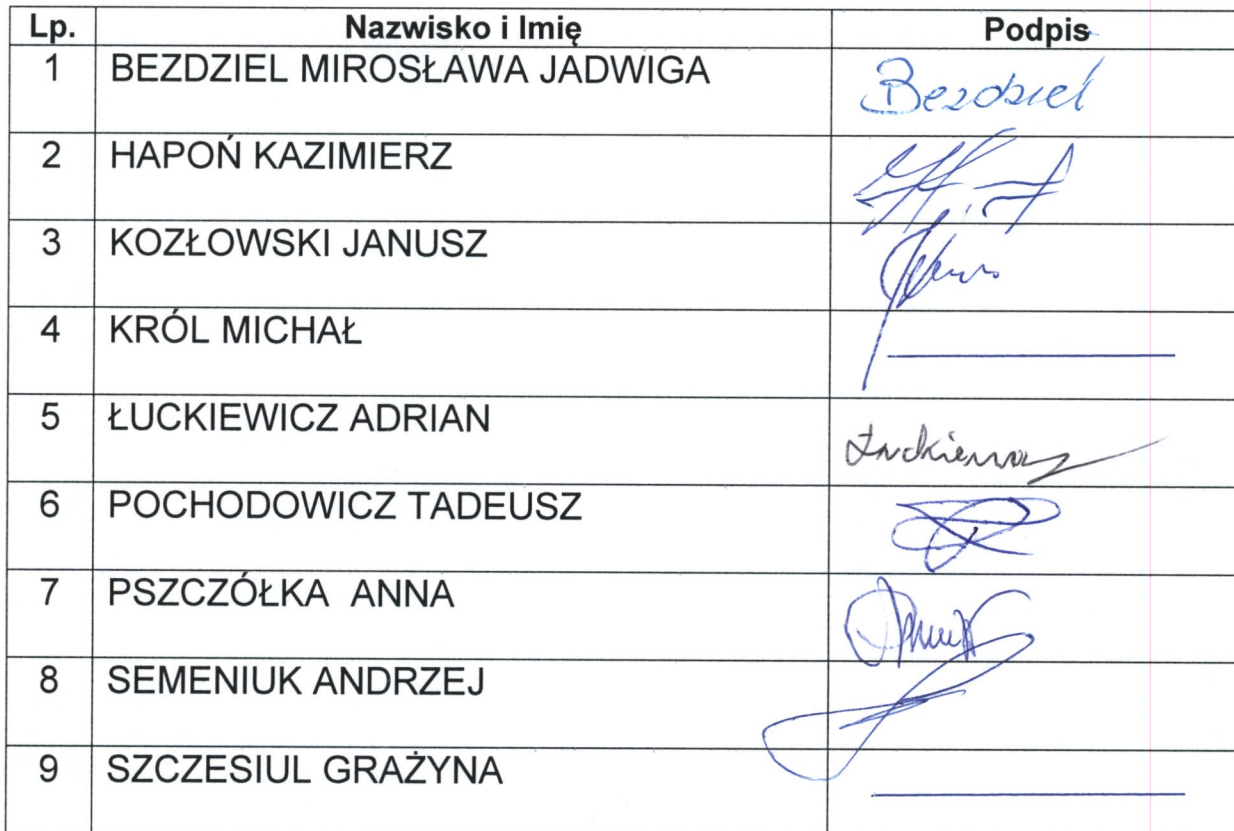 Lp. Nazwisko i Imię Podpis
1 BEZDZIEL MIROSŁAWA JADWIGA Bezdziel
2 HAPOŃ KAZIMIERZ
3 KOZŁOWSKI JANUSZ
4 KRÓL MICHAŁ
5 ŁUCKIEWICZ ADRIAN Łuckiewicz
6 POCHODOWICZ TADEUSZ
7 PSZCZÓŁKA ANNA
8 SEMENIUK ANDRZEJ
9 SZCZESIUL GRAŻYNA